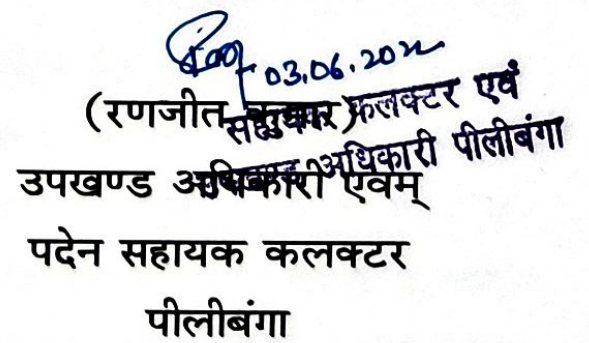 03.06.2022
(रणजीत कुमार)
सहायक कलक्टर एवं
अधिकारी पीलीबंगा
उपखण्ड अधिकारी एवम्
पदेन सहायक कलक्टर
पीलीबंगा